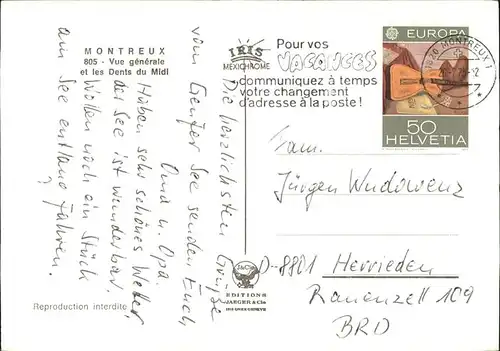 MONTREUX
805 - Vue générale
et les Dents du Midi
IRIS
MEXICHROME
Pour vos
VACANCES
communiquez à temps
votre changement
d'adresse à la poste!
EUROPA
MONTREUX 1
50
HELVETIA
Die herzlichsten Grüße
vom Genfer See senden Euch
Oma u. Opa.
Haben sehr schönes Wetter,
der See ist wunderbar.
Wollen noch ein Stück
am See entlang fahren.
Fam.
Jürgen Wudowenz
D-8801 Herrieden
Rauenzell 109
BRD
EDITIONS
JAEGER & Cie
Reproduction interdite